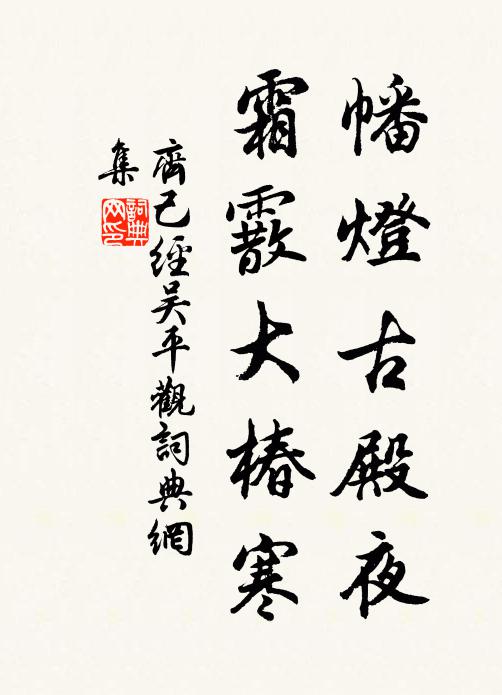 幡燈古殿夜
霜霰大椿寒
齊己經吴平觀詞典網
集
詞典
网印